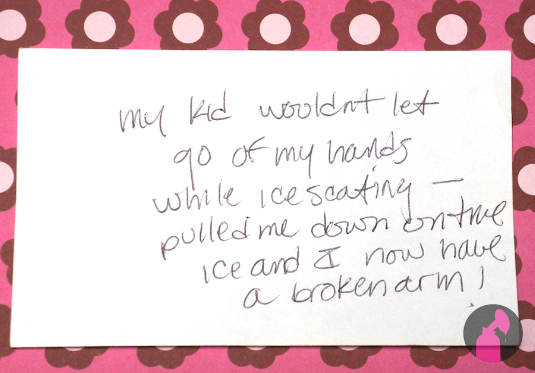 my kid wouldnt let
go of my hands
while ice scating —
pulled me down on the
ice and I now have
a broken arm!